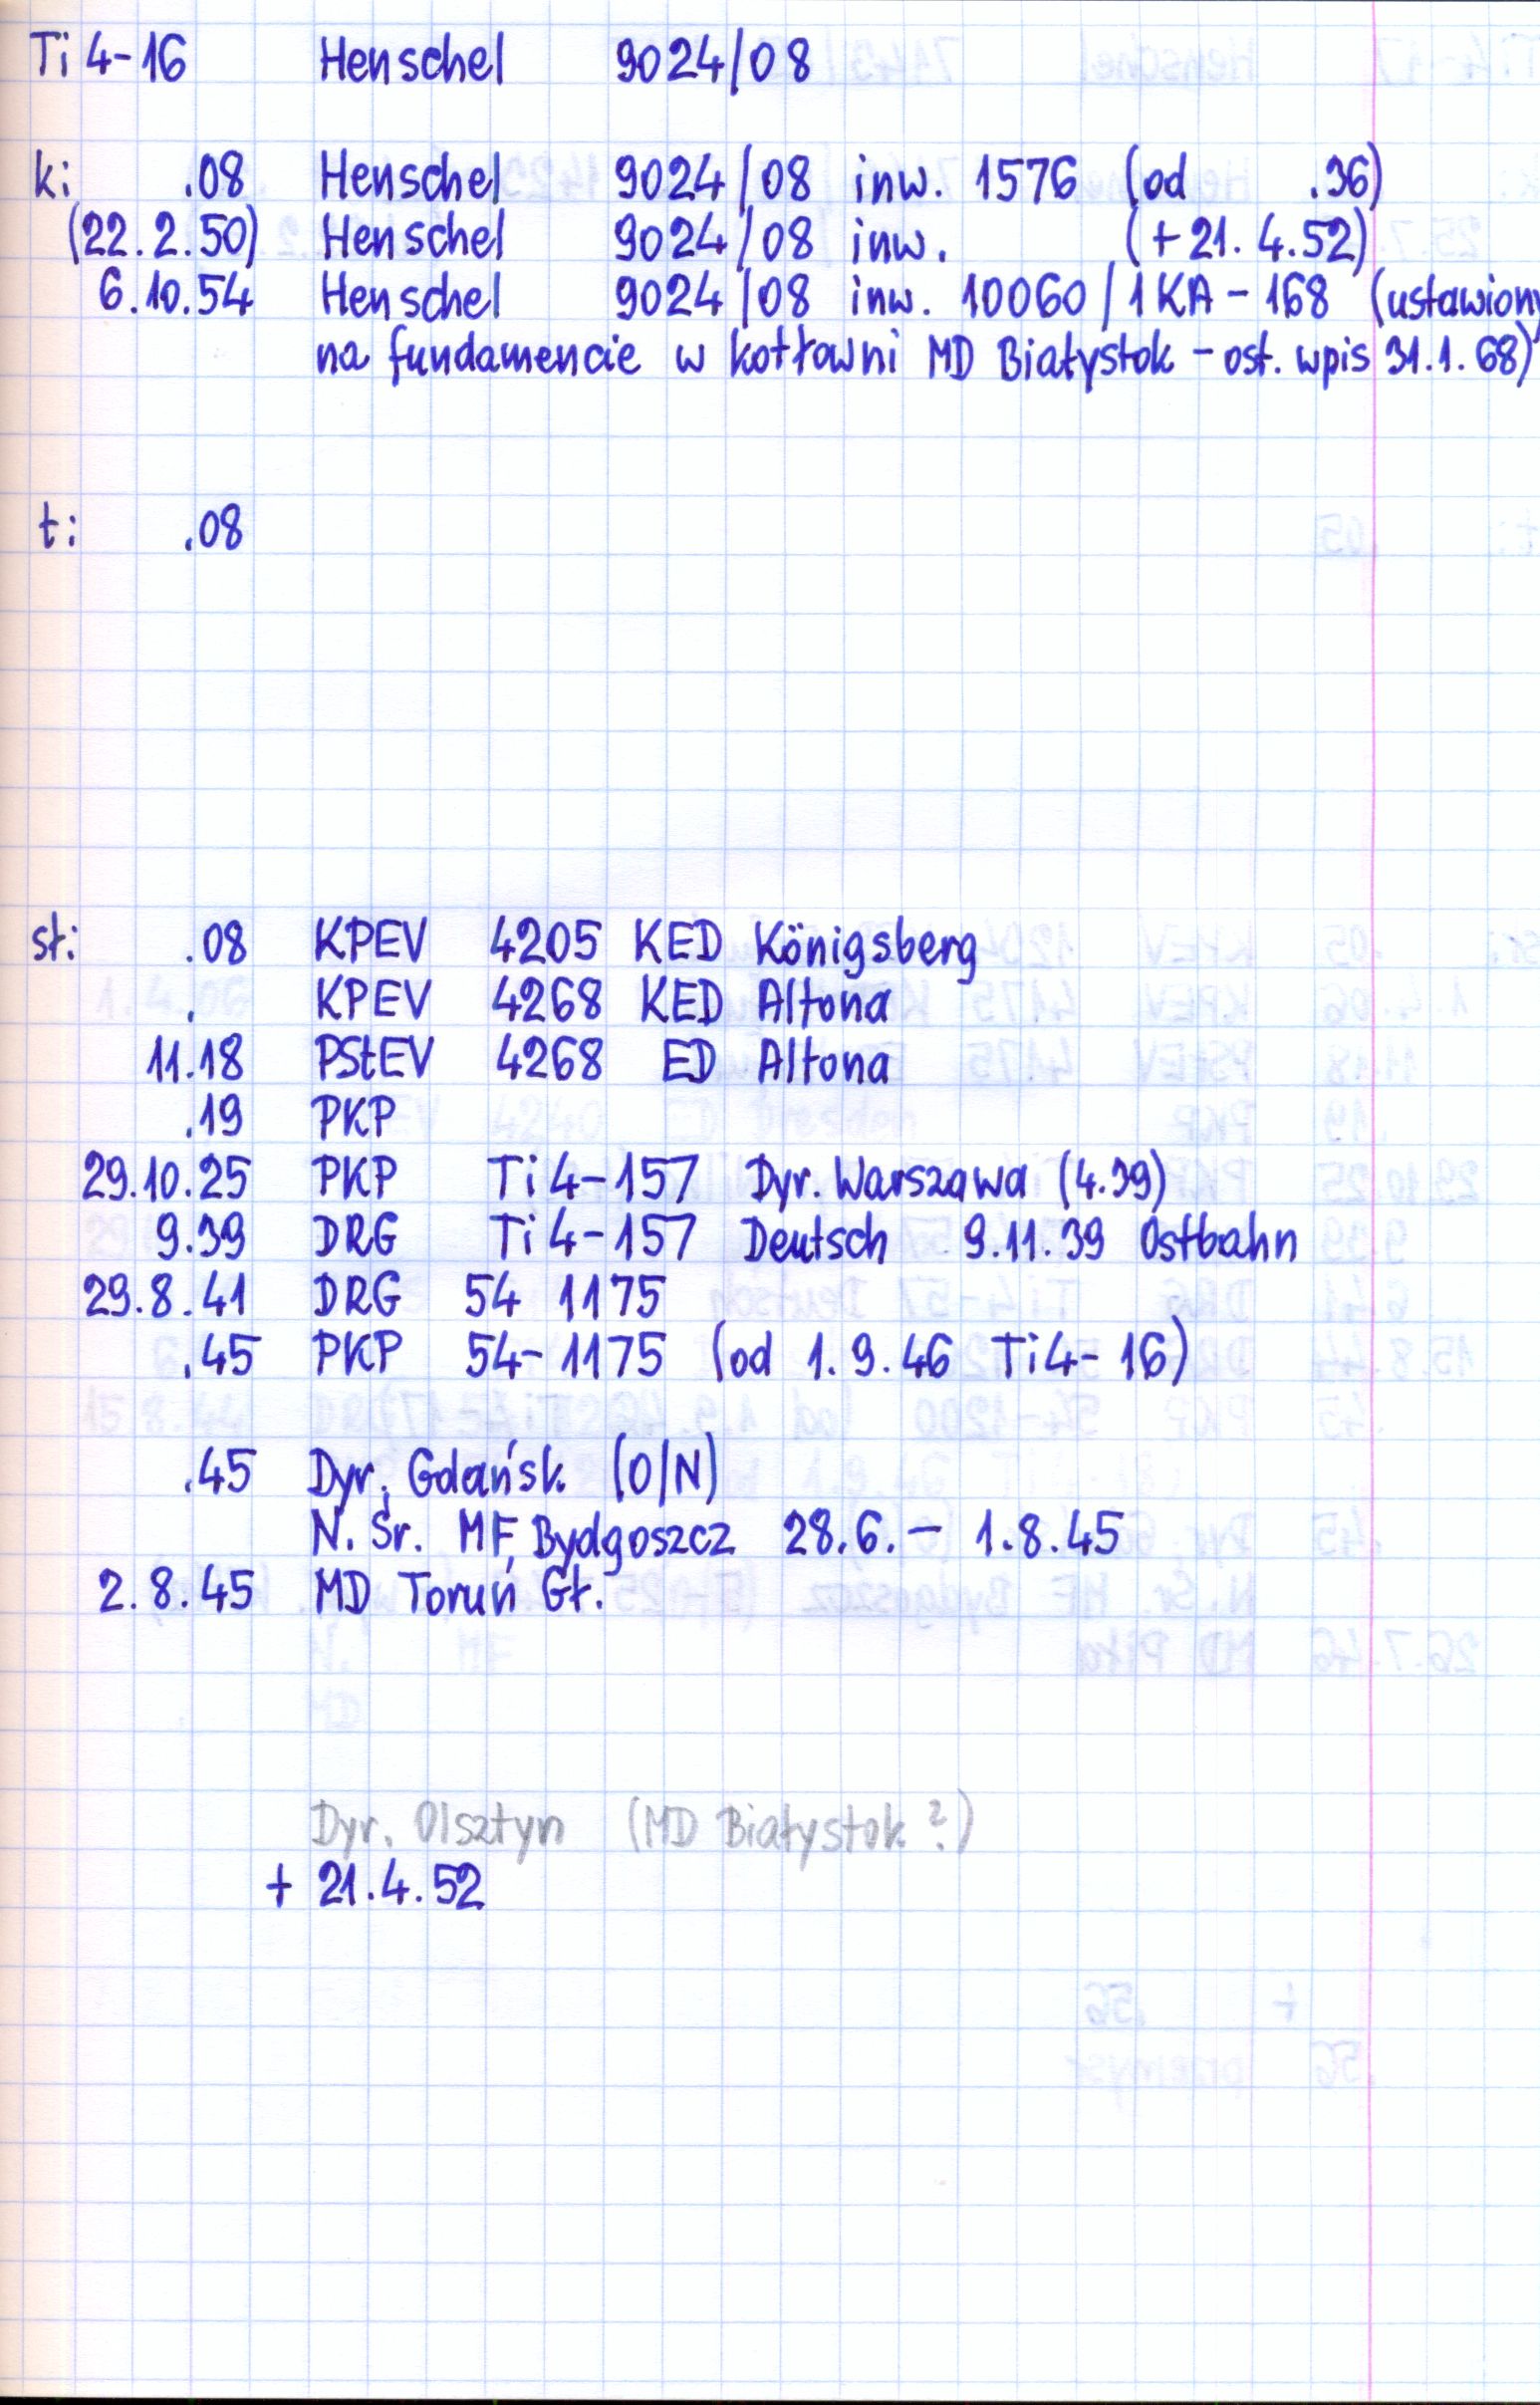 Ti 4-16 Henschel 9024/08
k: .08 Henschel 9024/08 inw. 1576 (od .36)
(22.2.50) Henschel 9024/08 inw. (+21.4.52)
6.10.54 Henschel 9024/08 inw. 10060/1KA-168 (ustawiony
na fundamencie w kotłowni MD Białystok - ost. wpis 31.1.68)
t: .08
st: .08 KPEV 4205 KED Königsberg
. KPEV 4268 KED Altona
11.18 PStEV 4268 ED Altona
.19 PKP
29.10.25 PKP Ti 4-157 Dyr. Warszawa (4.39)
9.39 DRG Ti 4-157 Deutsch 9.11.39 Ostbahn
29.8.41 DRG 54 1175
.45 PKP 54-1175 (od 1.9.46 Ti4-16)
.45 Dyr. Gdańsk (O/N)
N. Śr. MF Bydgoszcz 28.6. - 1.8.45
2.8.45 MD Toruń Gł.
Dyr. Olsztyn (MD Białystok?)
+ 21.4.52